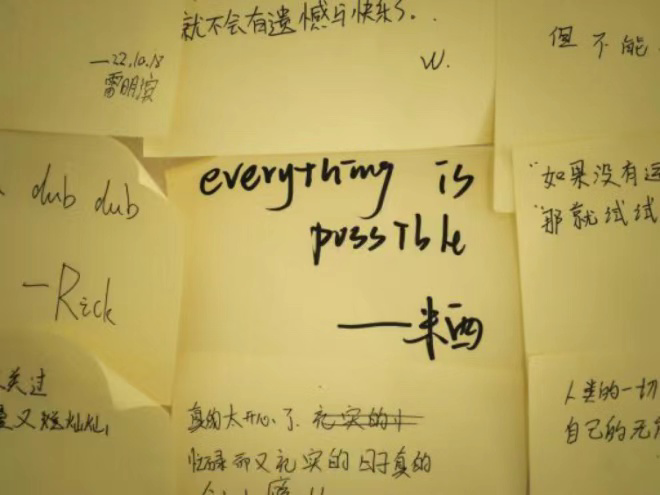 就不会有遗憾与快乐了.
W.
—22.10.18
雷明
但不能
dub dub
—Rick
everything is
possible
——米西
"如果没有
"那就试试
关过
又短灿灿,
真的太开心了. 充实的小
忙碌而又充实的日子真的
人类的一切
自己的无